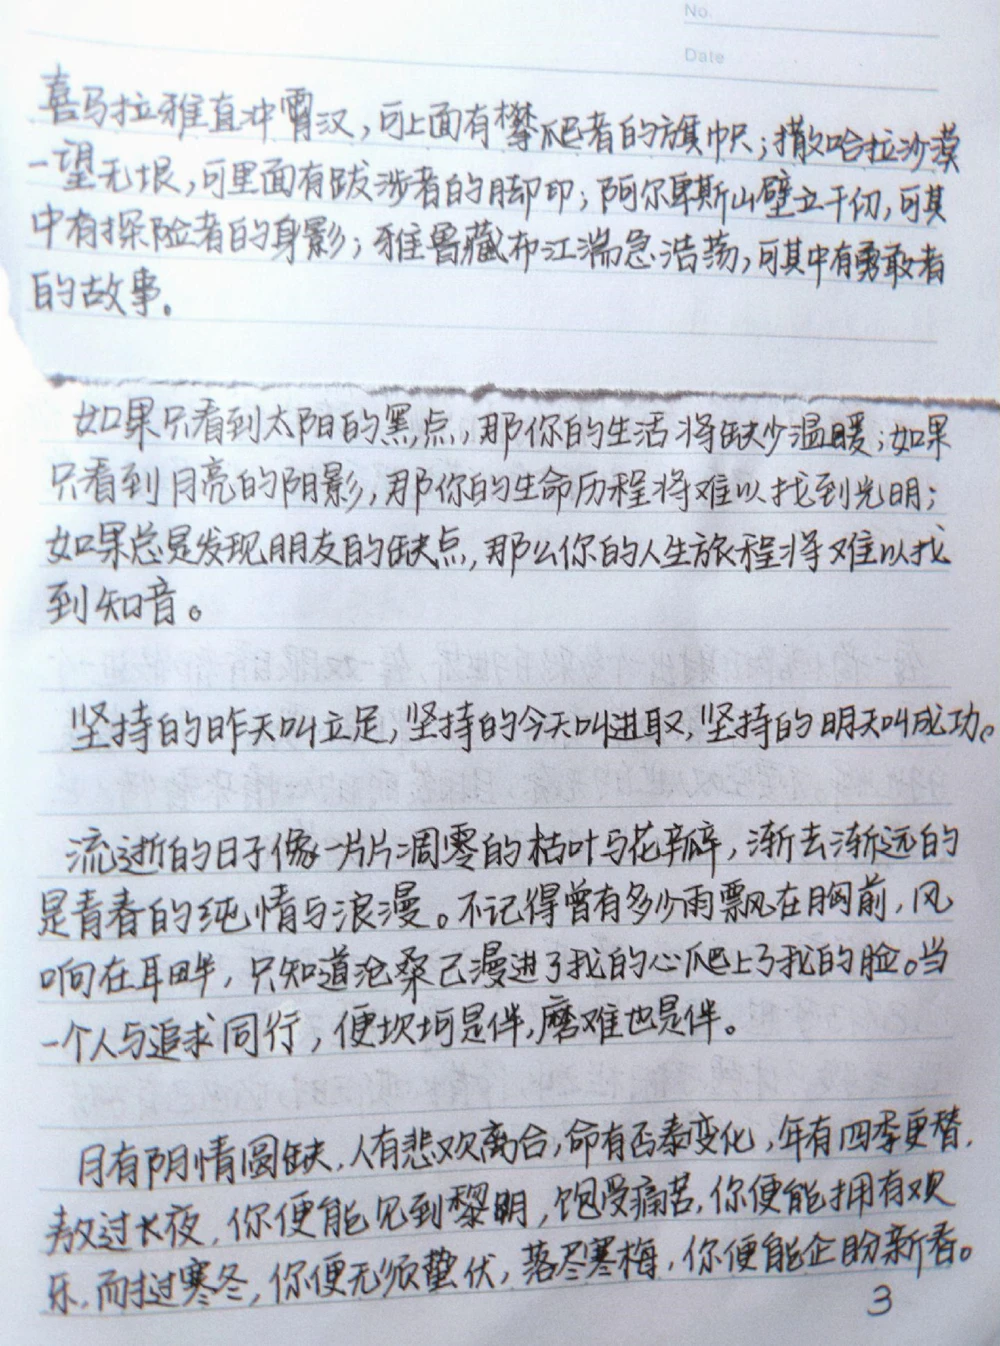 No.
Date
喜马拉雅直冲霄汉,可上面有攀爬者的旗帜;撒哈拉沙漠
一望无垠,可里面有跋涉者的脚印;阿尔卑斯山壁立千仞,可其
中有探险者的身影;雅鲁藏布江湍急浩荡,可其中有勇敢者
的故事.
如果只看到太阳的黑点,那你的生活将缺少温暖;如果
只看到月亮的阴影,那你的生命历程将难以找到光明;
如果总是发现朋友的缺点,那么你的人生旅程将难以找
到知音。
坚持的昨天叫立足,坚持的今天叫进取,坚持的明天叫成功。
流逝的日子像一片片凋零的枯叶与花瓣,渐去渐远的
是青春的纯情与浪漫。不记得曾有多少雨飘在胸前,风
响在耳畔,只知道沧桑已漫进了我的心爬上了我的脸。当
一个人与追求同行,便坎坷是伴,磨难也是伴。
月有阴情圆缺,人有悲欢离合,命有否泰变化,年有四季更替,
熬过长夜,你便能见到黎明,饱受痛苦,你便能拥有欢
乐,而挨过寒冬,你便无须蛰伏,落尽寒梅,你便能企盼新春。
3